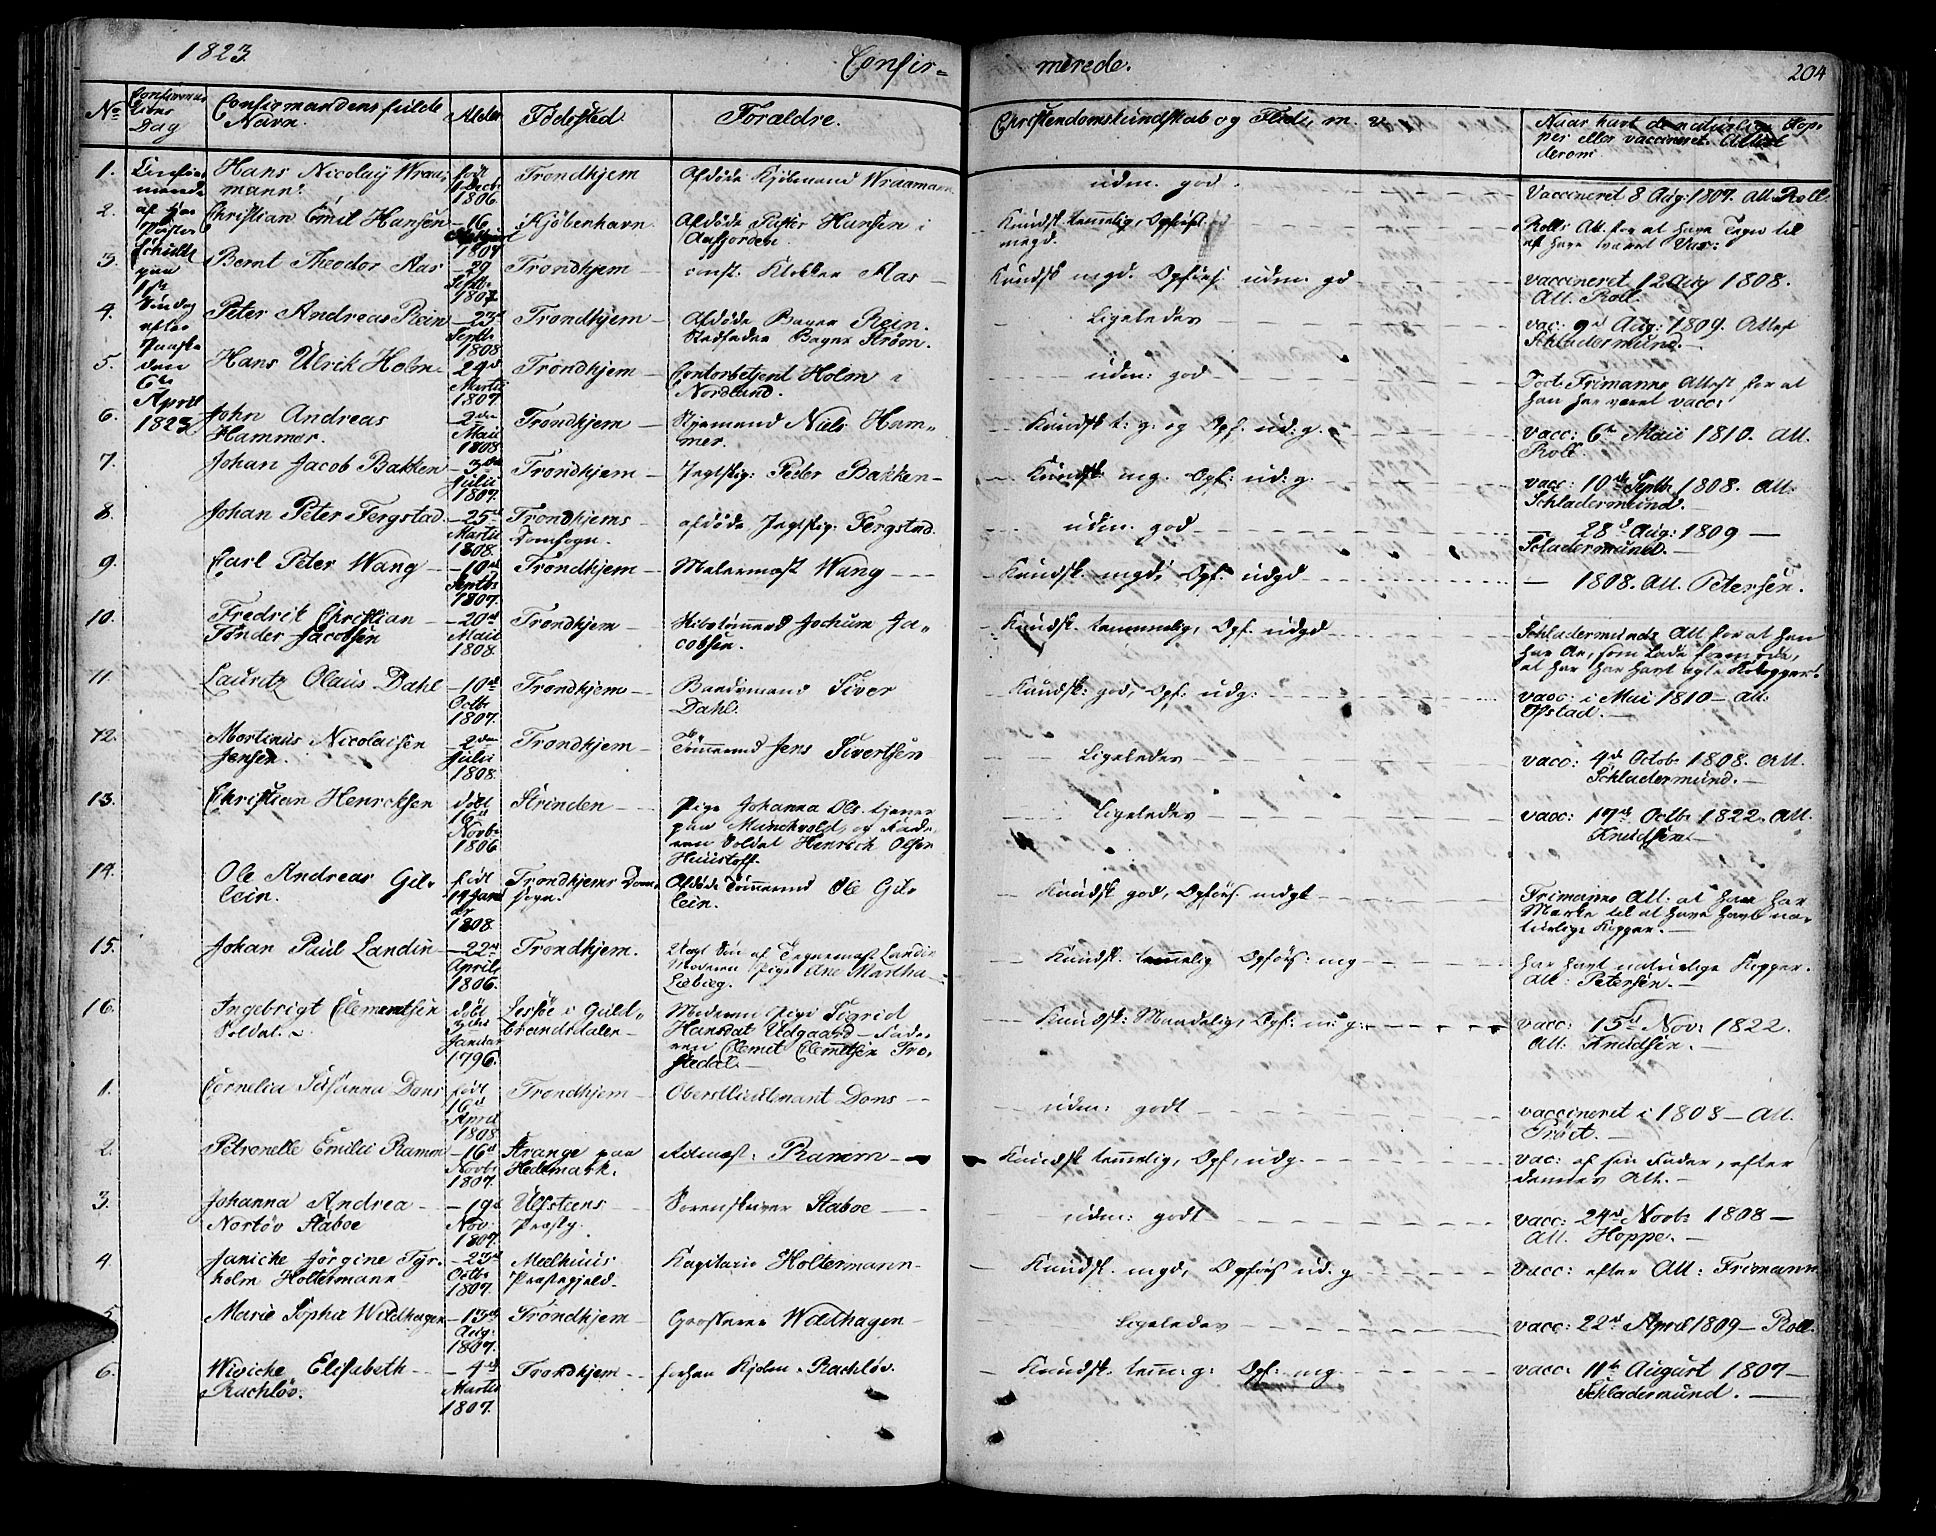 1823
Confir=
merede.
204
No
Confirma
tions
Dag
Confirmandens fulde
Navn.
Alder
Fødested
Forældre.
Christendomskundskab og Flid m. v.
Naar havt de naturlige Kop=
per eller vaccineret. Attest
derom
Confir=
merede
af Hr
Pastor
Schiødt
paa
1ste
Søndag
efter
Paaske
den
6te
April
1823
1. Hans Nicolay Wraa=
mann.
født
1 Decb
1806
Trondhjem
Afdøde Kjøbmand Wraamann
udm. god.
Vaccineret 8 Aug: 1807. Att. Roll.
2. Christian Emil Hansen
16
1807
Kjøbenhavn
Afdøde Peder Hansen i
Aafjorden.
Kundsk. temmelig, Opførs.
megd.
Rolls Att. for at have Tegn til
at have været Vac:
3. Bernt Theodor Aas
29
Septbr
1807
Trondhjem
const. Klokker Aas
Kundsk mgd. Opførs. udm. gd
vaccineret 12 Aug 1808.
Att. Roll.
4. Peter Andreas Rein
23d
Septbr
1808
Trondhjem
Afdøde Bager Rein.
Stedfader Bager Strøm.
Ligeledes
vac: 9d Aug: 1809. Attest
Schladermund.
5. Hans Ulrik Holm
24d
Martii
1807
Trondhjem
Contorbetjent Holm i
Nordland.
udm: god
Doct: Frimanns Attest for at
han har været vacc:
6. John Andreas
Hammer.
2den
Maii
1808
Trondhjem
Styrmand Niels Ham=
mer.
Kundsk t: g: og Opf: ud: g.
vacc: 6te Maii 1810. Att.
Roll.
7. Johan Jacob Bakken
3die
Julii
1807.
Trondhjem
Jagtskip: Peder Bakken
Kundsk mg. Opf: ud: g.
vacc: 10de Septb 1808. Att:
Schladermund.
8. Johan Peter Fergstad
25d
Martii
1808.
Trondhjems
Domsogn.
afdøde Jagtskip: Fergstad.
udm. god
28d Aug: 1809
Schladermund.
9. Carl Peter Wang
10d
Septbr
1807.
Trondhjem
Malermest Wang
Kundsk. mgd, Opf. udgd
1808. Att. Petersen.
10. Fredrik Christian
Tønder Jacobsen
20d
Maii
1808.
Trondhjem
Skibstømmermd Jochum Ja=
cobsen.
Kundsk. temmelig, Opf. udgd
Schladermunds Att for at han
har Ar, som lade formode,
at han har havt ægte Kokopper.
11. Lauritz Olaus Dahl
10d
Octbr
1807.
Trondhjem
Baadsmand Siver
Dahl.
Kundsk: god, Opf. udg:
vacc: i Mai 1810 Att:
Opstad.
12. Martinus Nicolaisen
Jensen.
2den
Julii
1808
Trondhjem
Tømmermd Jens Sivertsen
Ligeledes
vacc: 4d Octobr 1808. Att.
Schladermund.
13. Christian Henricksen
født
16d
Novb
1806
Strinden
Pige Johanna Ols. tjener
paa Munckvold, og Fade=
ren Soldat Henrich Olsen
Ligeledes
vacc: 17d Octbr 1822. Att.
Knudsen
14. Ole Andreas Gil=
lein.
født
19 Janu
ar
1808.
Trondhjems Dom=
sogn.
Afdøde Tømmermd Ole Gil=
lein.
Kundsk god, Opførs. mdgt
Frimanns Att: at han har
Mærke til at have havt na=
turlige Kopper.
15. Johan Paul Landin
22d
Aprils
1806.
Trondhjem.
Uægt Søn af Landin
Moderen Pige Ane Martha
Kundsk. temmelig Opførs: mg
har havt naturlige Kopper.
Att: Petersen.
16. Ingebrigt Clementsen
Soldat.
født
Januar
1796.
Lessøe i Guld=
brandsdalen
Moderen Pige Sigrid
Hansdat Udgaard Fade=
ren Clemet Clemetsen Tro=
stedal.
Kundsk: Maadelig, Opf: m: g:
vacc: 15d Nov: 1822.
Att: Knudsen.
1. Cornelia Susanna Dons
født
16d
April
1808
Trondhjem
Oberstlieutenant Dons
udm: godt
vaccineret i 1808 Att.
Trøst.
2. Petronelle Emilie Ramm
16d
Novbr
1807.
Stange paa
Hedemark.
Ramm
Kundsk temmelig, Opf, udg.
vac: af sin Fader, efter
dennes Att.
3. Johanna Andrea
Nortøv Staboe
19d
Nov:
1807.
Ulfsteens
Præstg.
Sorenskriver Staboe
udm: godt
vacc: 24d Novb: 1808
Att. Hoppe.
4. Janicke Jørgine Tyr=
holm Holtermann
23d
Octbr
1807.
Meelhuus
Præstegjeld.
Kapitain Holtermann
Kundsk. mgd, Opførs ud: g
vacc: efter Att: Frimann
5. Marie Sophia Wildhagen
13d
Aug:
1807.
Trondhjem
Wildhagen
Ligeledes
vacc: 22d April 1809 Roll.
6. Wiviche Elisabeth
Rachløv.
4d
Martii
1807.
Trondhjem
Rachløv.
Kundsk. tem: g: Opf: mg
vacc: 11te August 1807
Schladermund.